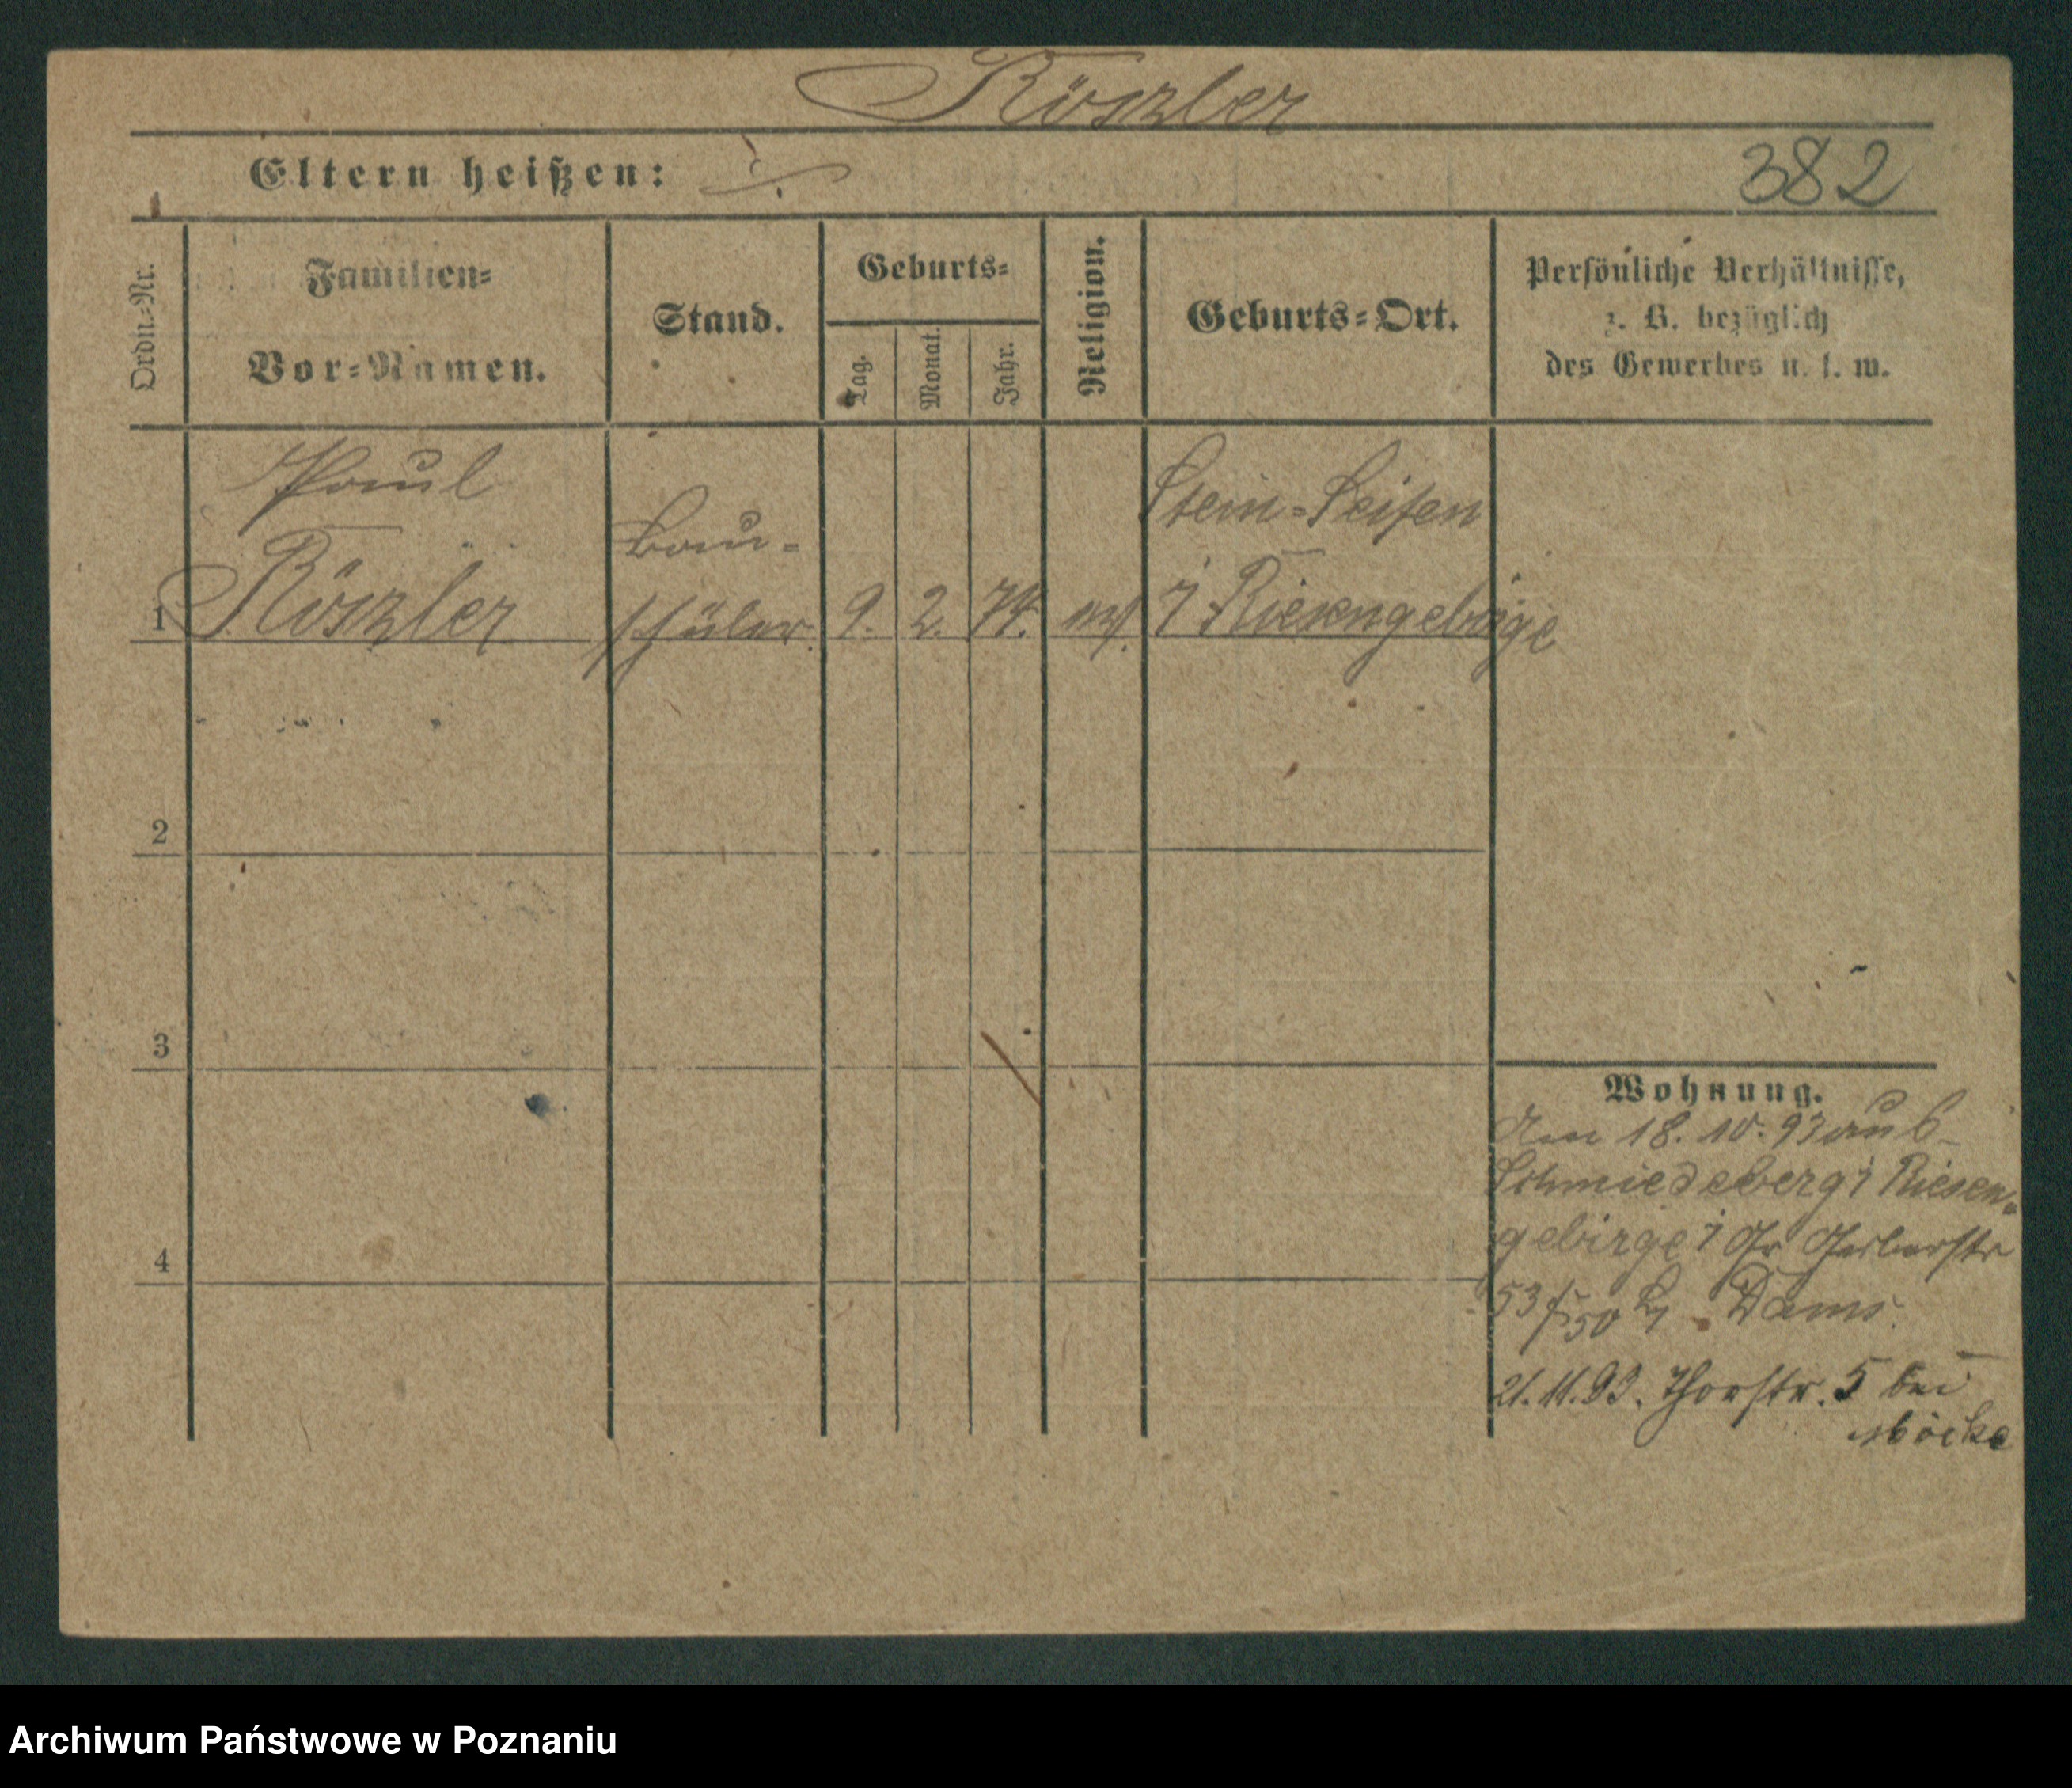 Röszler
Eltern heißen: ./.
382
Ordn.-Nr.
Familien-
Vor-Namen.
Stand.
Geburts-
Tag.
Monat.
Jahr.
Religion.
Geburts-Ort.
Persönliche Verhältnisse,
z. B. bezüglich
des Gewerbes u. s. w.
Paul
Röszler
Bau-
schüler
9. 2. 74. ev.
Stein-Seifen
i Riesengebirge
1
2
3
4
Wohnung.
Am 18. 10. 93 aus
Schmiedeberg i Riesen-
gebirge i Gr Gerberstr
53 b. Dams.
21.11.93. Thorstr. 5 bei
Archiwum Państwowe w Poznaniu